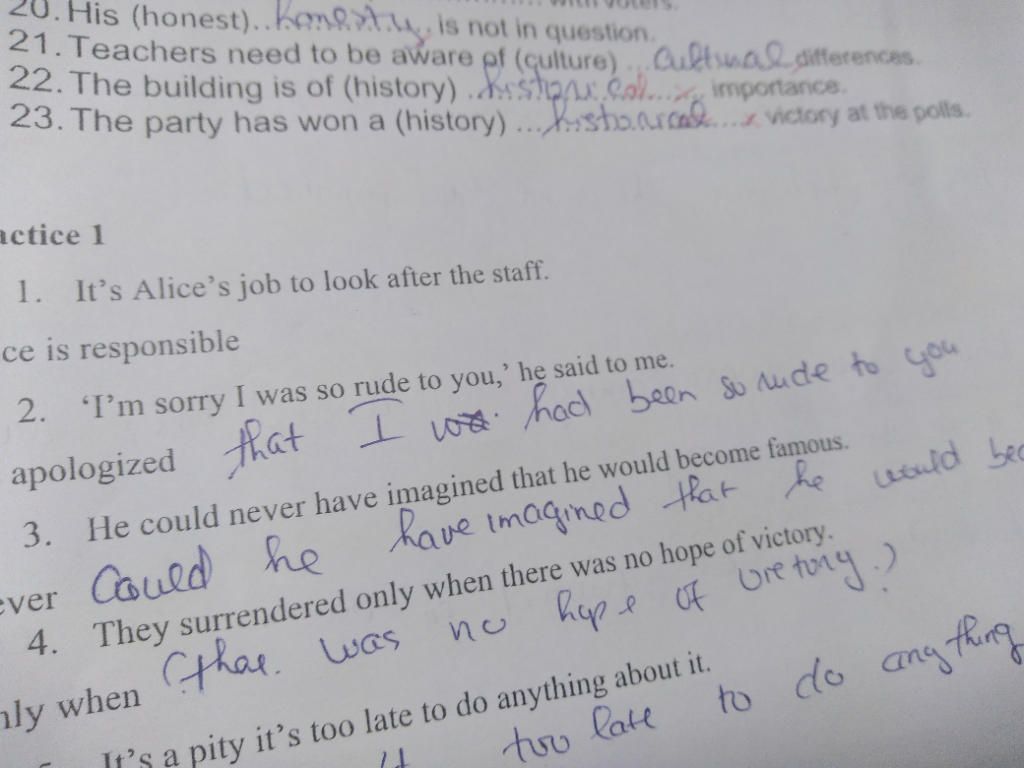 20. His (honest)..honesty. is not in question.
21. Teachers need to be aware of (culture) ...Cultural differences.
22. The building is of (history) .historical...x. importance.
23. The party has won a (history) ...historical...x victory at the polls.
actice 1
1. It's Alice's job to look after the staff.
ce is responsible
2. 'I'm sorry I was so rude to you,' he said to me.
apologized that I had been so rude to you
3. He could never have imagined that he would become famous.
ever Could he have imagined that he would bec
4. They surrendered only when there was no hope of victory.
nly when (thar. was no hope of victory.)
It's a pity it's too late to do anything about it.
it too late to do anything